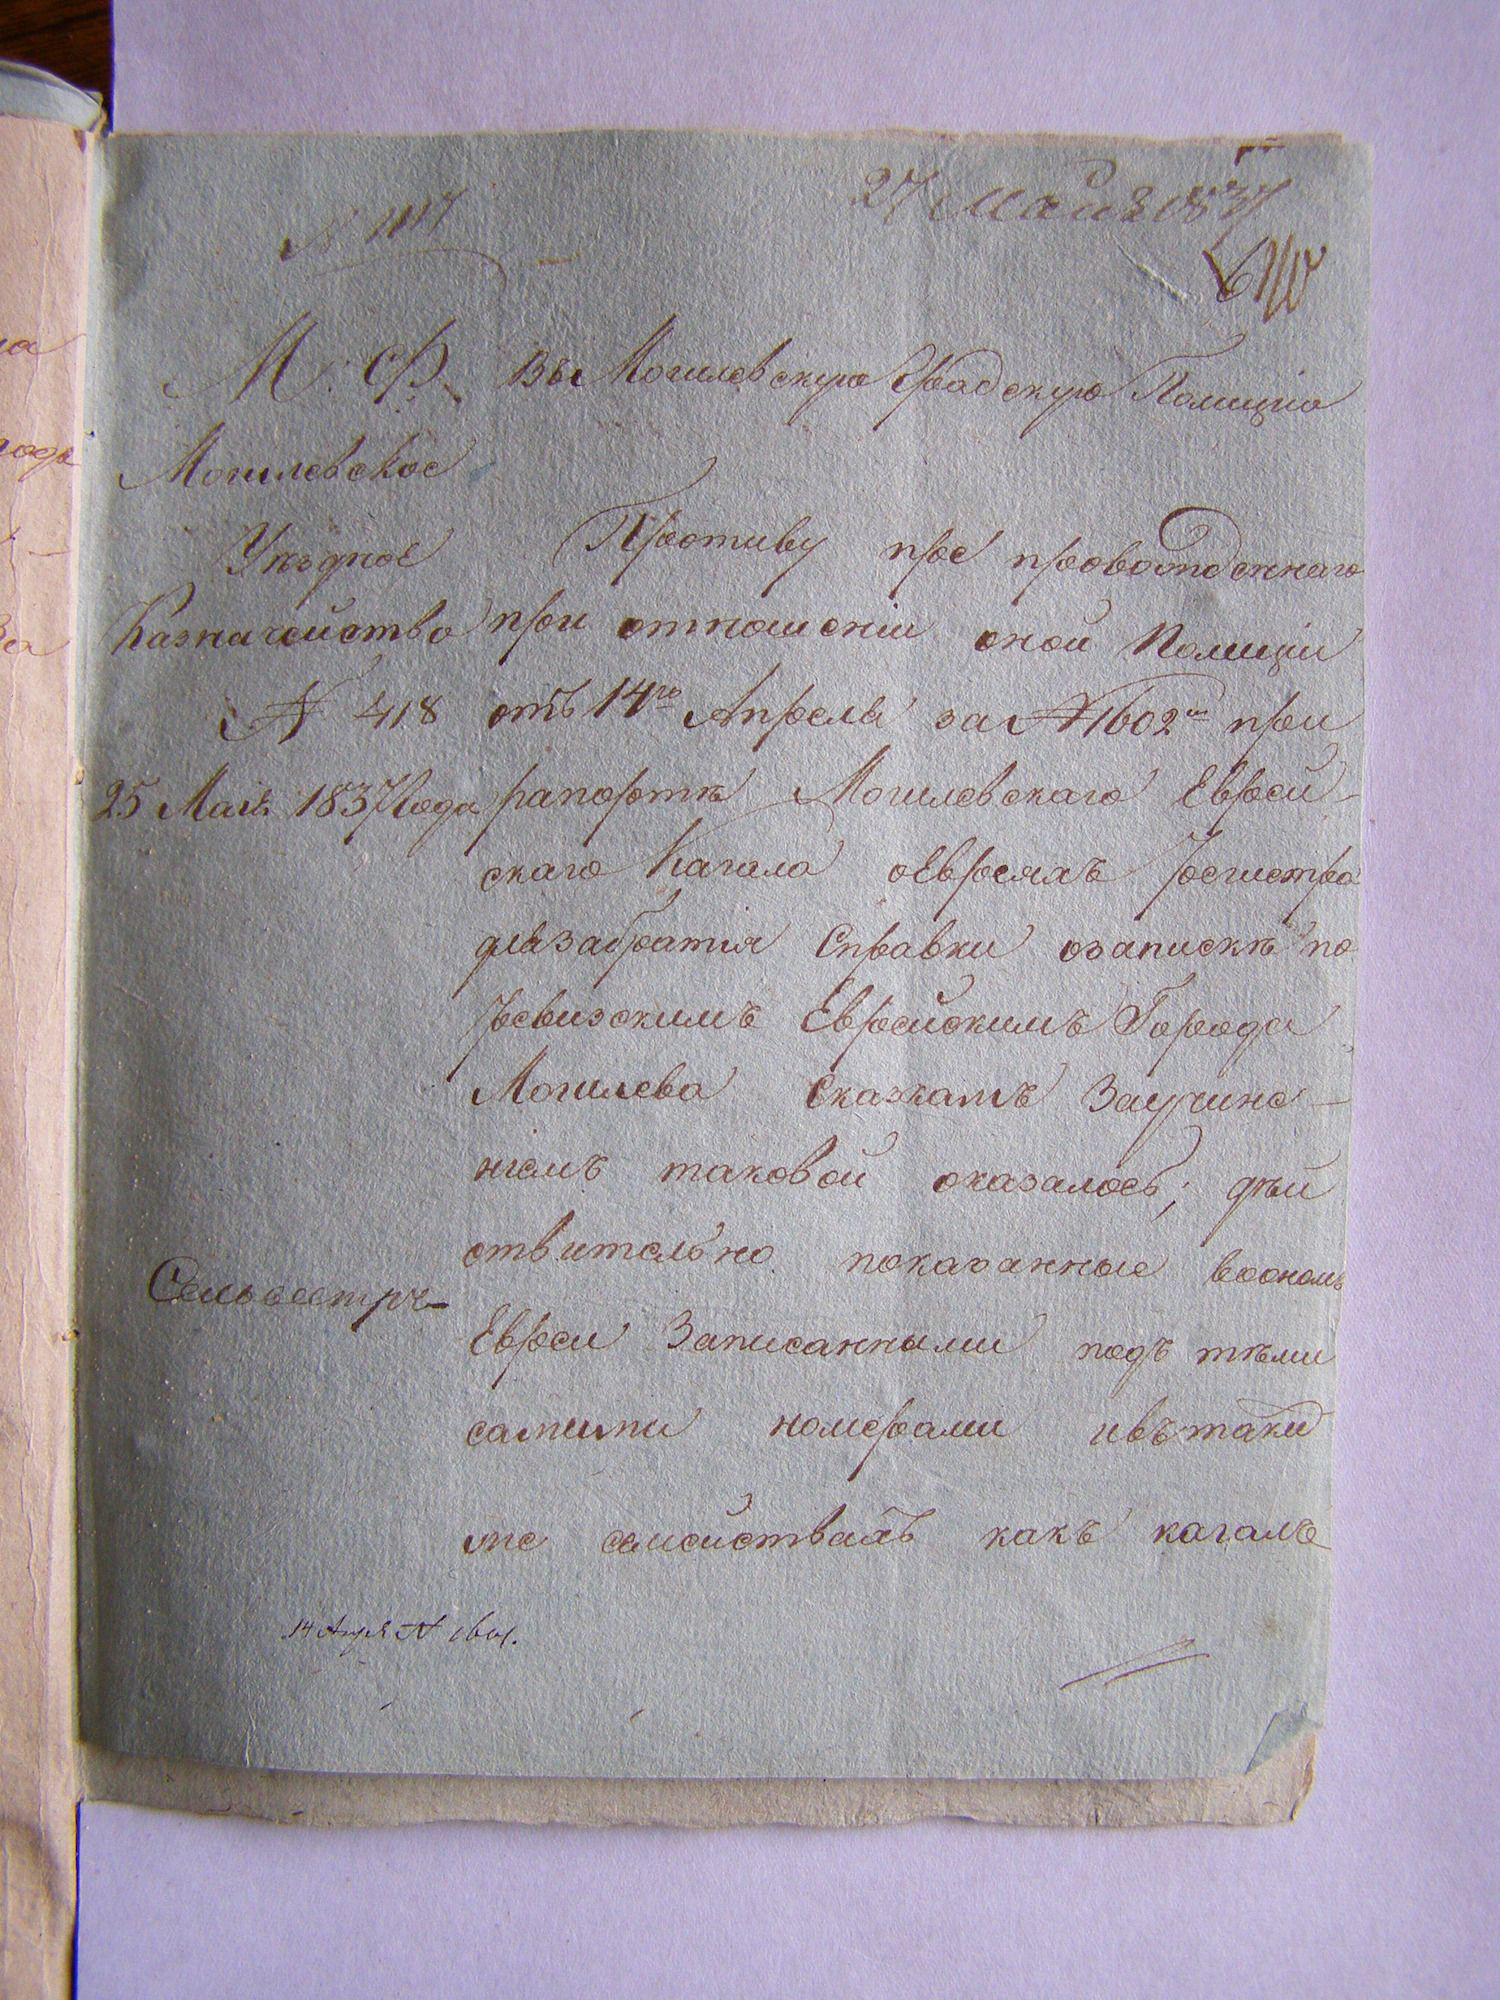 № 1117
27 Мая 1837
М. Ф.
Могилевское
Уѣздное
Казначейство
№ 418
25 Маія 1837 года
Сельвестръ
Въ Могилевскую Градскую Полицію
Противу пре провожденнаго
при отношеніи оной Полиціи
отъ 14го Апреля за № 1602м при
рапортѣ Могилевскаго Еврей-
скаго Кагала о Евреяхъ регистра
для забратія Справки о запискѣ по
ревизскимъ Еврейскимъ Города
Могилева Сказкамъ За учине-
ніемъ таковой оказалось; дѣй
ствительно показанные воономъ
Евреи Записанными подъ тѣми
самими номерами ивътаки
же семействахъ какъ кагалъ
14 Апреля №